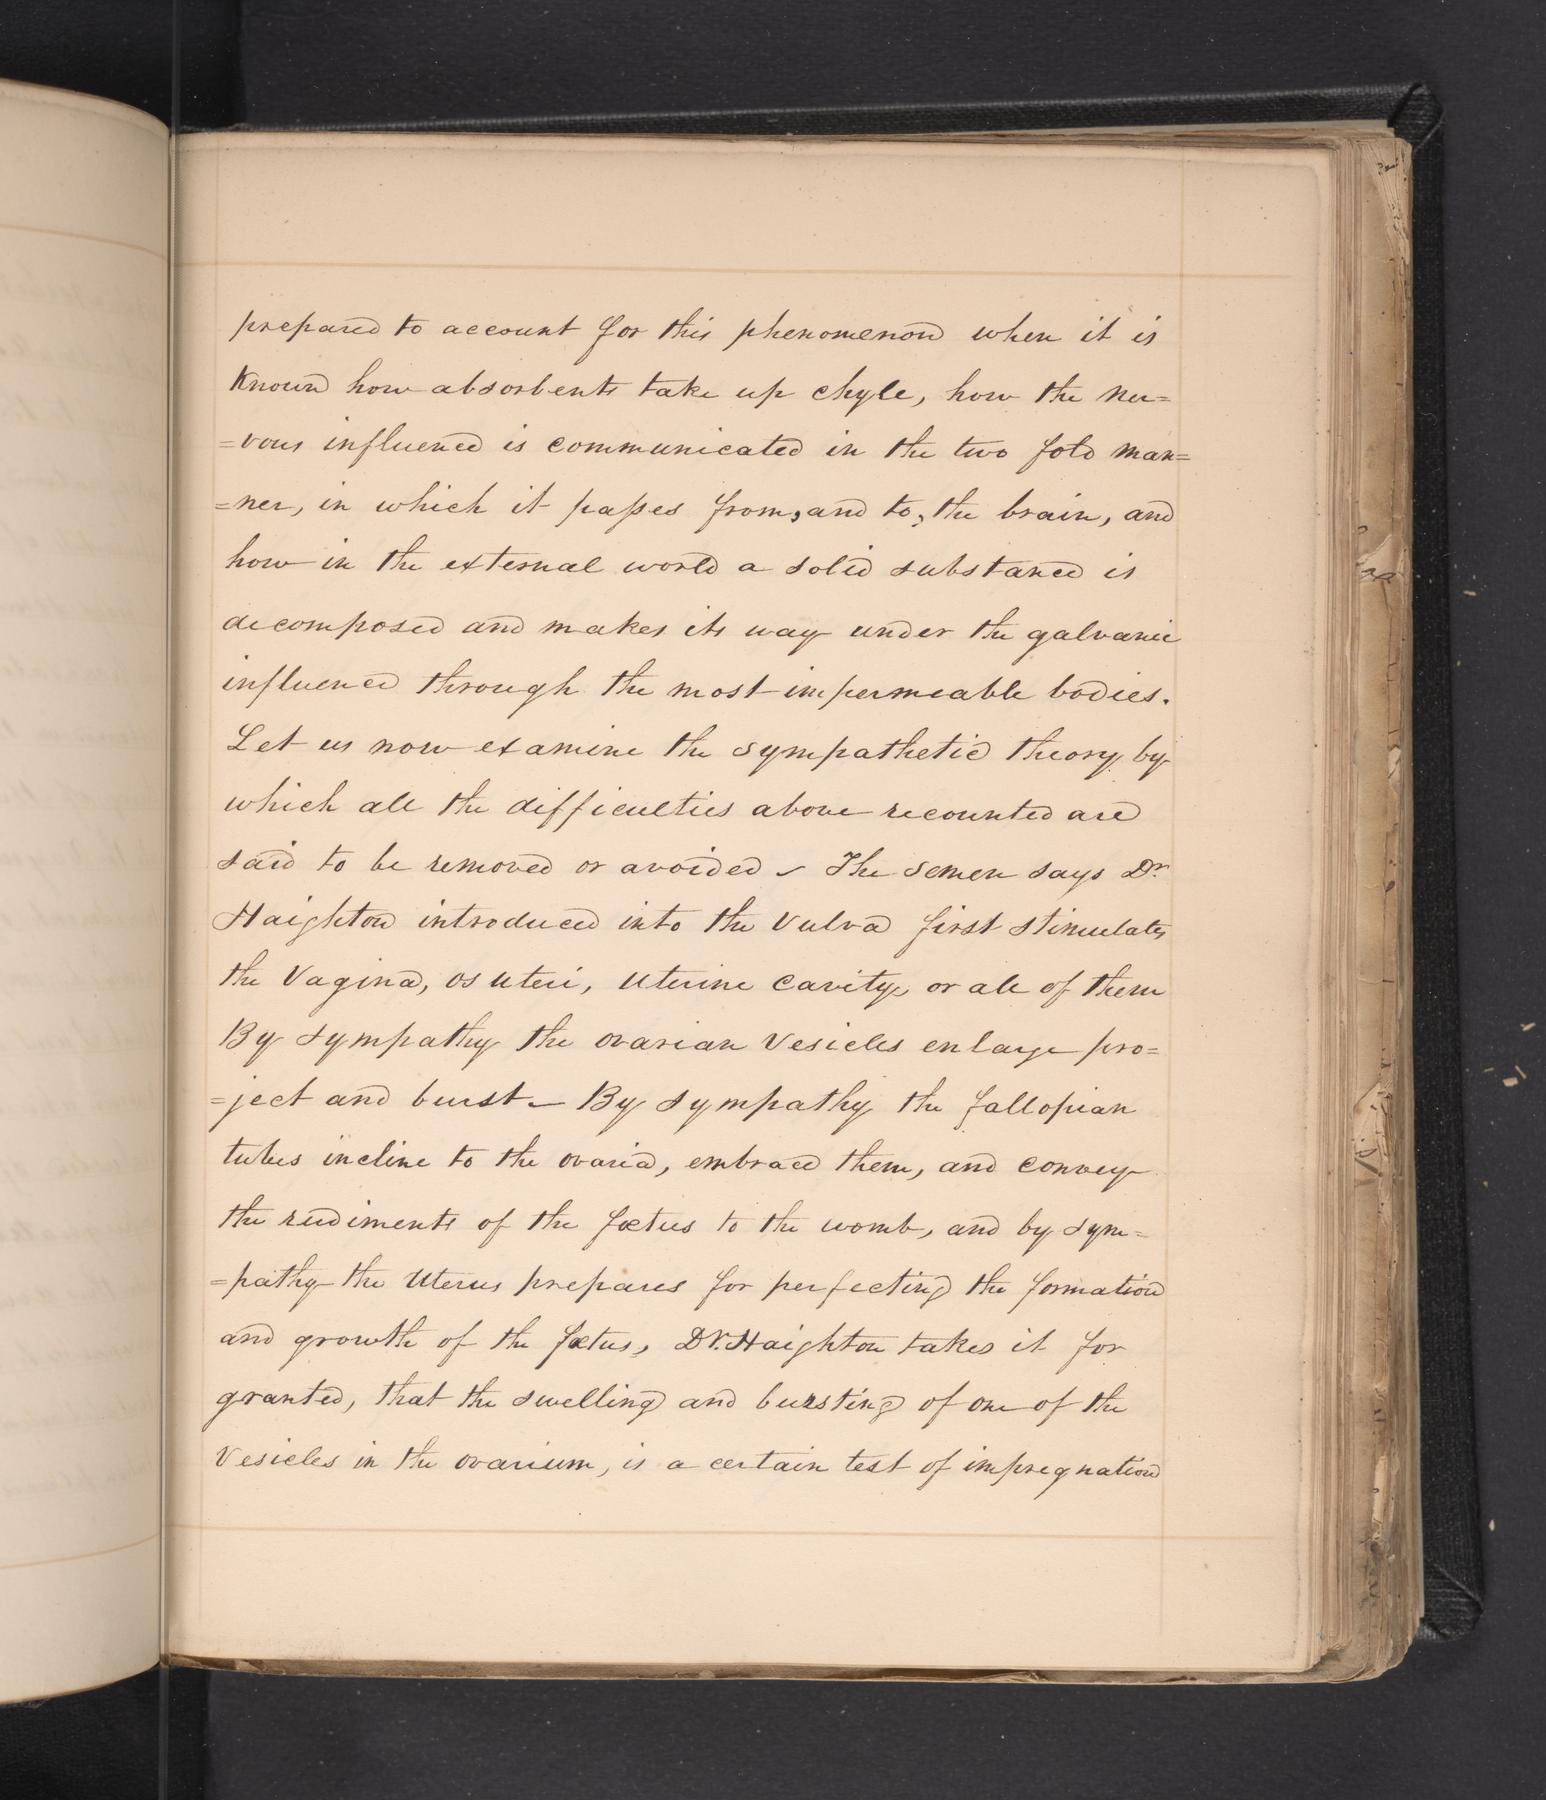 prepared to account for this phenomenon when it is
known how absorbents take up chyle, how the ner=
=vous influence is communicated in the two fold man=
=ner, in which it paſses from, and to, the brain, and
how in the external world a solid substance is
decomposed and makes its way under the galvanic
influence through the most impermeable bodies.
Let us now examine the sympathetic theory by
which all the difficulties above recounted are
said to be removed or avoided – The semen says Dr
Haighton introduced into the Vulva first stimulates
the Vagina, os uteri, Uterine Cavity, or all of them
By sympathy the ovarian Vesicles enlarge pro=
=ject and burst – By sympathy the fallopian
tubes incline to the ovaria, embrace them, and convey
the rudiments of the fœtus to the womb, and by sym=
=pathy the Uterus prepares for perfecting the formation
and growth of the fœtus, Dr. Haighton takes it for
granted, that the swelling and bursting of one of the
Vesicles in the ovarium, is a certain test of impregnation